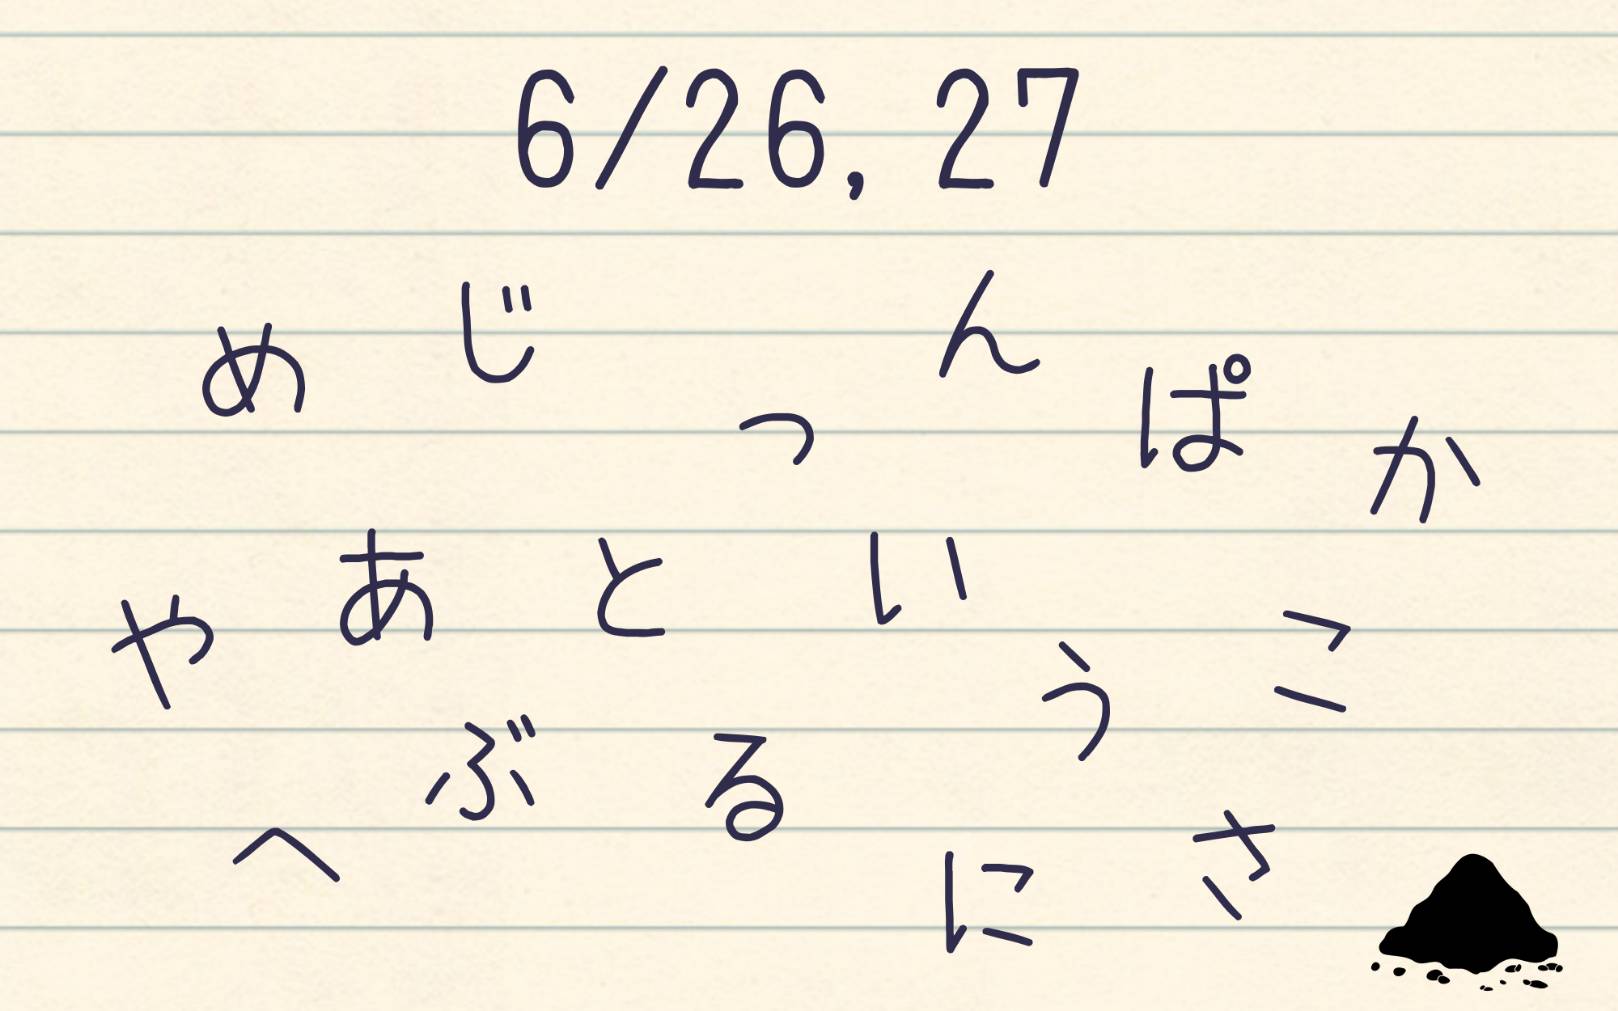 6/26, 27
め じ っ ん ぱ か
や あ と い う こ
へ ぶ る に さ